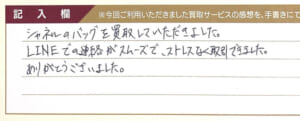 記入欄
※今回ご利用いただきました買取サービスの感想を、手書きにて
シャネルのバッグを買取していただきました。
LINEでの連絡がスムーズで、ストレスなく取引できました。
ありがとうございました。